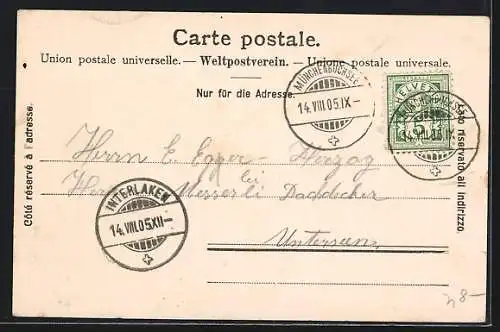 Carte postale.
Union postale universelle. — Weltpostverein. — Unione postale universale.
Nur für die Adresse.
Côté réservé à l'adresse.
Lato riservato all indirizzo.
MÜNCHENBUCHSEE
14.VIII.05.IX-
HELVETIA
5
MÜNCHENBUCHSEE
14.VIII.05.IX-
Herrn E. Egger - Herzog
bei
Herrn Messerli Dachdecker
Unterseen
INTERLAKEN
14.VIII.05.XII-
8-